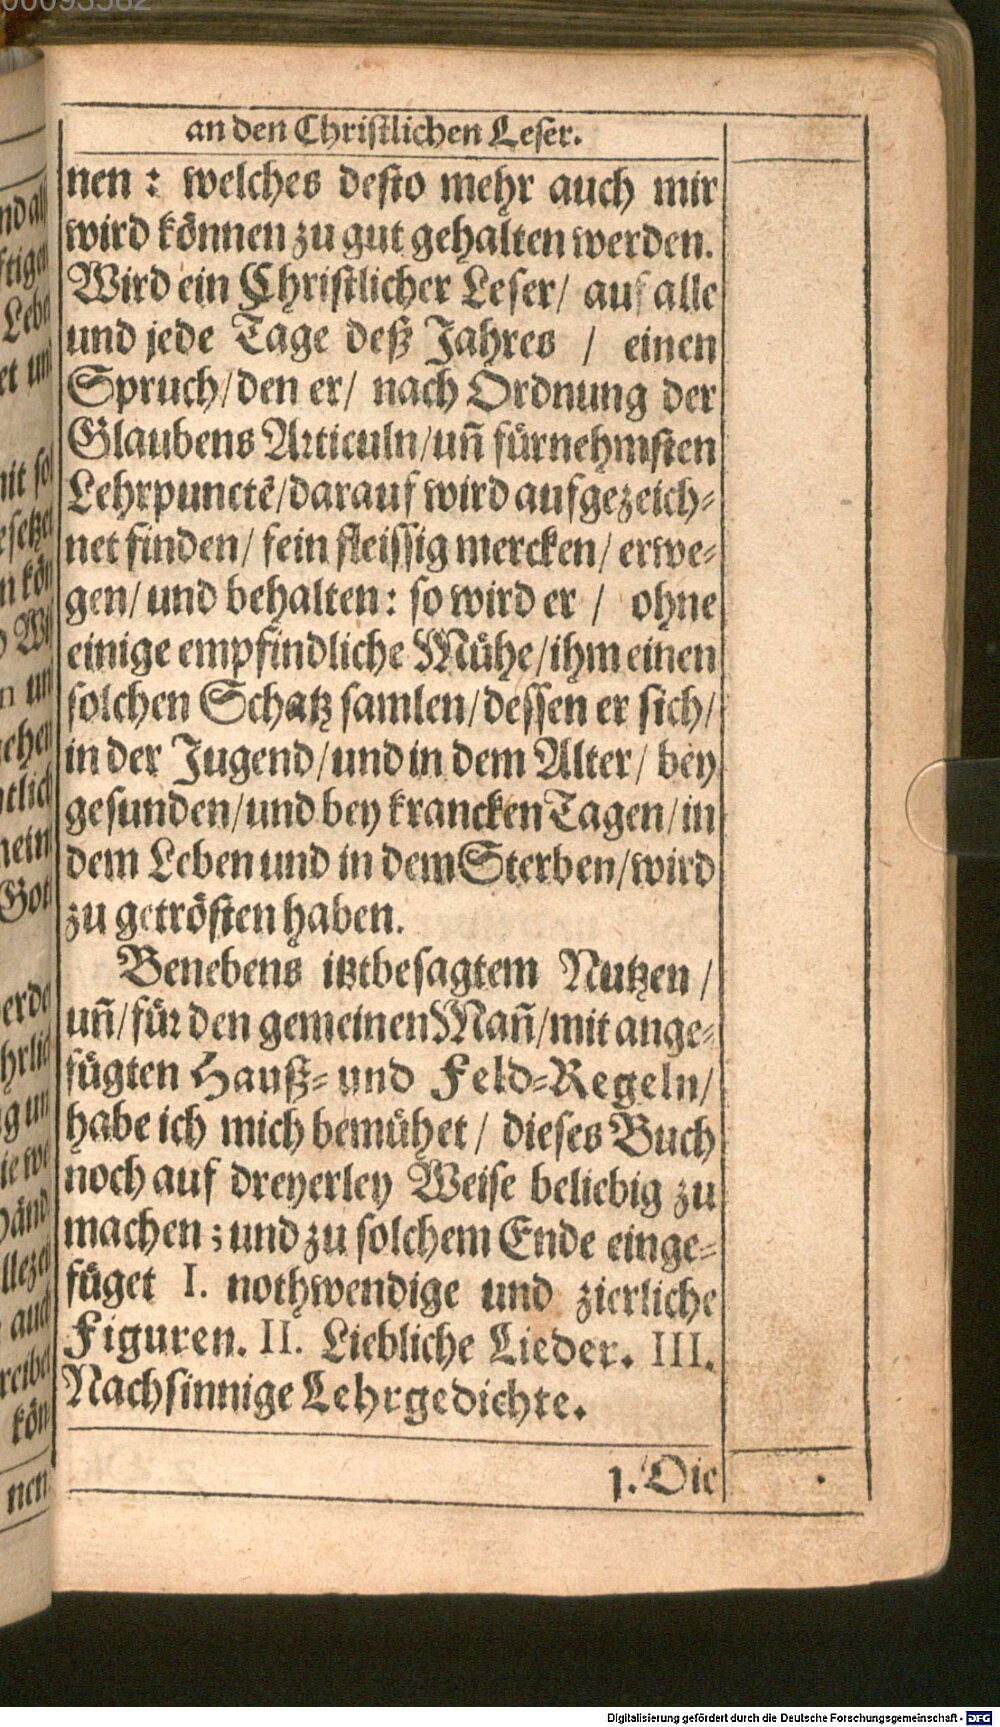 00093582
an den Christlichen Leser.
nen : welches desto mehr auch mir
wird können zu gut gehalten werden.
Wird ein Christlicher Leser/ auf alle
und jede Tage deß Jahres / einen
Spruch/den er/ nach Ordnung der
Glaubens Articuln/uñ fürnehmsten
Lehrpunctẽ/darauf wird aufgezeich-
net finden/ fein fleissig mercken/ erwe-
gen/ und behalten: so wird er / ohne
einige empfindliche Mühe/ihm einen
solchen Schatz samlen/dessen er sich/
in der Jugend/und in dem Alter/ bey
gesunden/und bey krancken Tagen/in
dem Leben und in dem Sterben/wird
zu getrösten haben.
Benebens itztbesagtem Nutzen /
uñ/für den gemeinen Mañ/mit ange-
fügten Hauß- und Feld-Regeln/
habe ich mich bemühet/ dieses Buch
noch auf dreyerley Weise beliebig zu
machen ; und zu solchem Ende einge-
füget I. nothwendige und zierliche
Figuren. II. Liebliche Lieder. III.
Nachsinnige Lehrgedichte.
1. Die
Digitalisierung gefördert durch die Deutsche Forschungsgemeinschaft - DFG